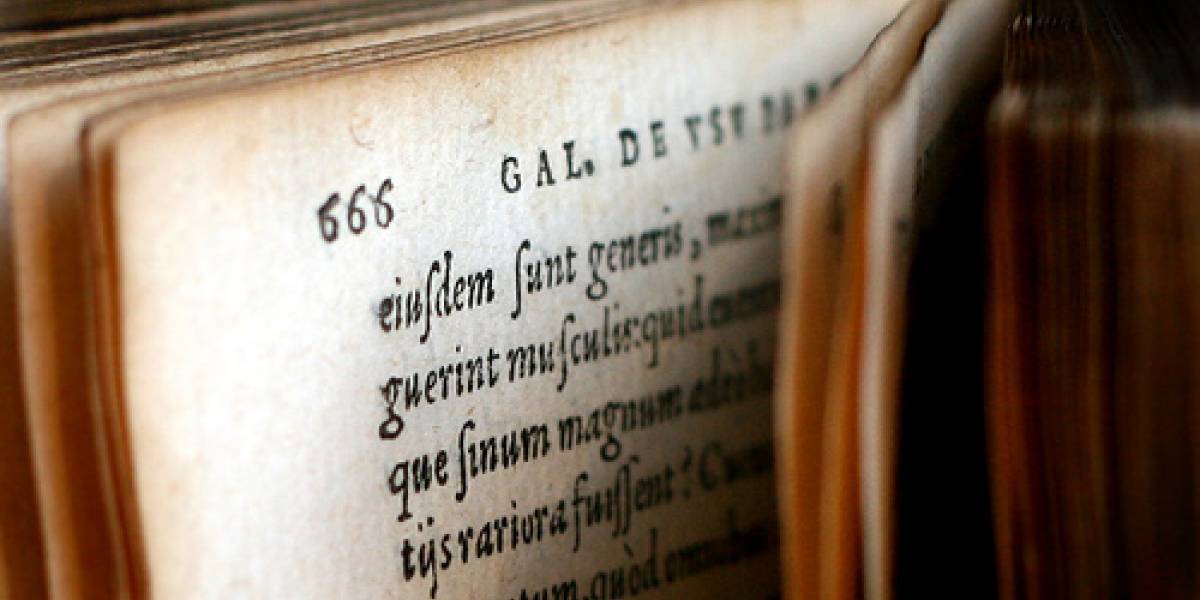 666 GAL. DE VSV
eiuſdem ſunt generis,
guerint muſculis: quid
que ſinum magnum adeò
tijs rariora fuiſſent? Cum
quòd omnibus